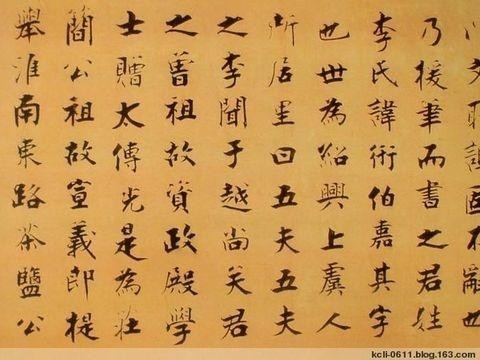 文固不辭也
乃援筆而書之君姓
李氏諱衎伯嘉其字
也世為紹興上虞人
所居里曰五夫五夫
之李聞于越尚矣君
之曾祖故資政殿學
士贈太傅光是為莊
簡公祖故宣義郎提
舉淮南東路茶鹽公
kcli-0611.blog.163.com